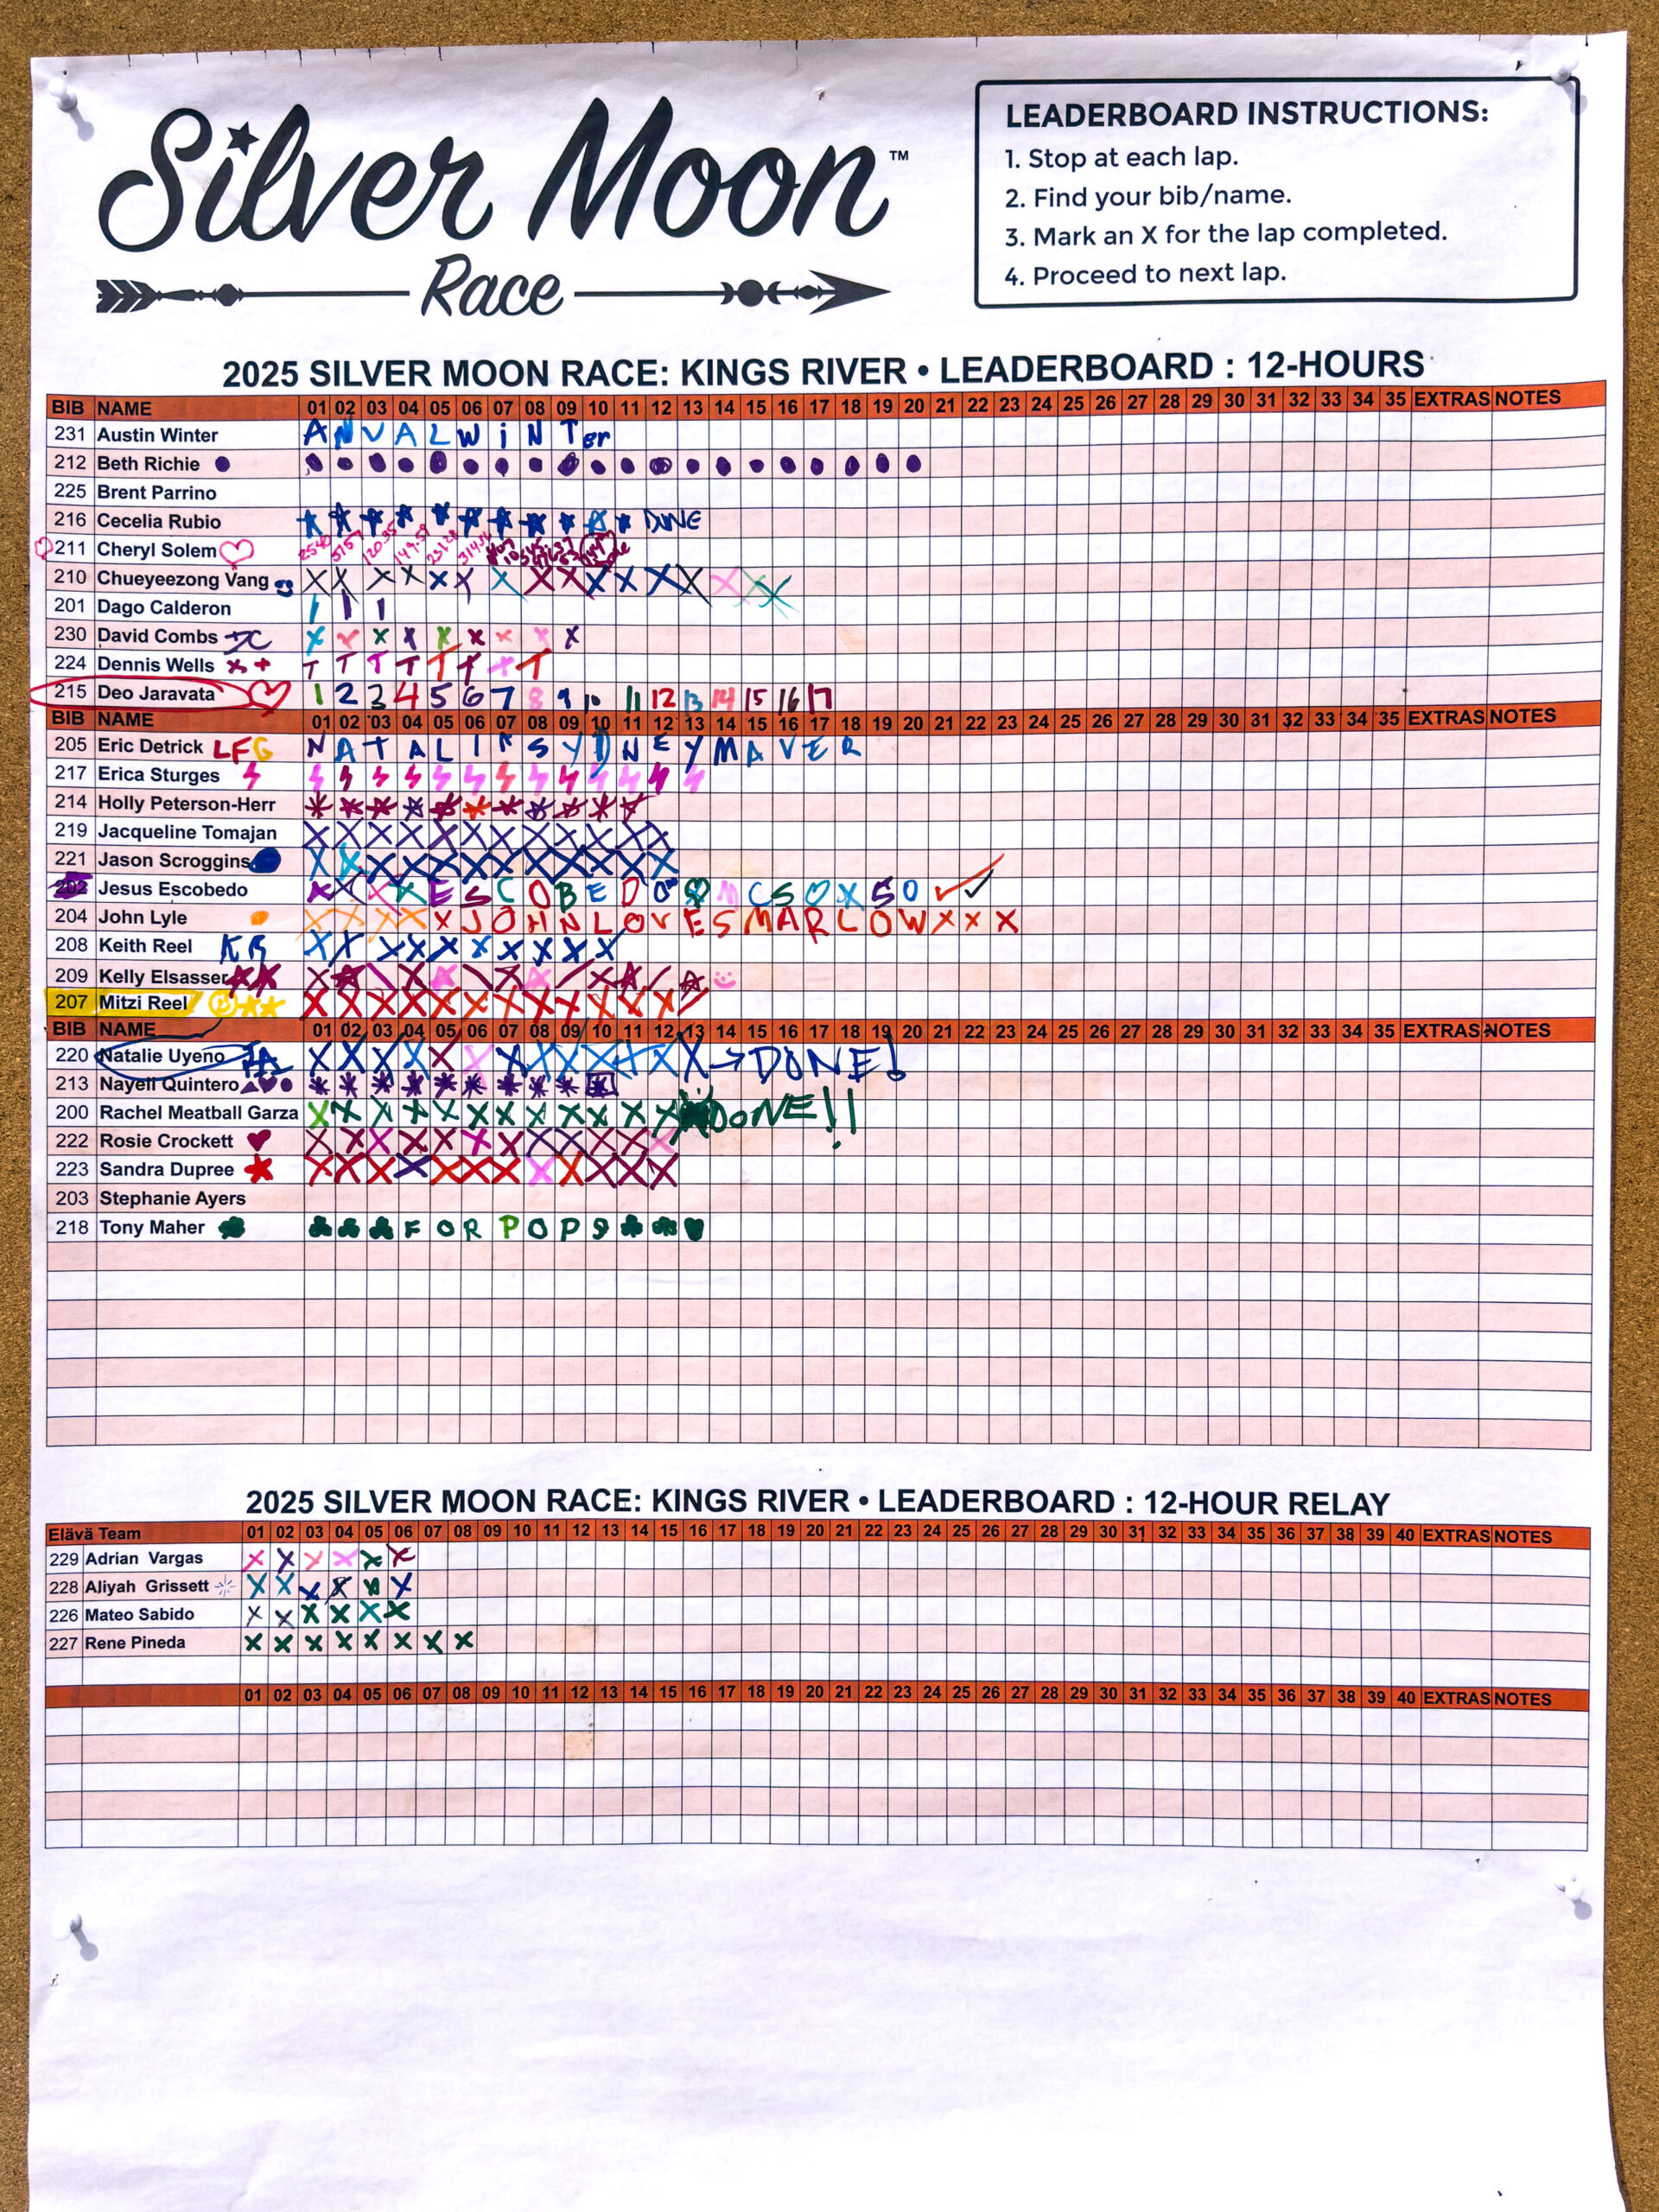 Silver Moon™
Race
LEADERBOARD INSTRUCTIONS:
1. Stop at each lap.
2. Find your bib/name.
3. Mark an X for the lap completed.
4. Proceed to next lap.
2025 SILVER MOON RACE: KINGS RIVER • LEADERBOARD : 12-HOURS
BIB NAME 01 02 03 04 05 06 07 08 09 10 11 12 13 14 15 16 17 18 19 20 21 22 23 24 25 26 27 28 29 30 31 32 33 34 35 EXTRAS NOTES
231 Austin Winter A N V A L W i N T er
212 Beth Richie
225 Brent Parrino
216 Cecelia Rubio DONE
211 Cheryl Solem
210 Chueyeezong Vang X X X X X X X X X X X X X X X X
201 Dago Calderon I I I
230 David Combs DC X X X X X X X X X
224 Dennis Wells x + T T T T T T T T
215 Deo Jaravata 1 2 3 4 5 6 7 8 9 10 11 12 13 14 15 16 17
BIB NAME 01 02 03 04 05 06 07 08 09 10 11 12 13 14 15 16 17 18 19 20 21 22 23 24 25 26 27 28 29 30 31 32 33 34 35 EXTRAS NOTES
205 Eric Detrick LFG N A T A L I S Y D N E Y M A V E R
217 Erica Sturges
214 Holly Peterson-Herr
219 Jacqueline Tomajan X X X X X X X X X X X X
221 Jason Scroggins X X X X X X X X X X X X
202 Jesus Escobedo X X X X E S C O B E D O M C S O X 5 0
204 John Lyle X X X X X J O H N L O V E S M A R L O W X X X
208 Keith Reel KR X X X X X X X X X X
209 Kelly Elsasser
207 Mitzi Reel X X X X X X X X X X X X
BIB NAME 01 02 03 04 05 06 07 08 09 10 11 12 13 14 15 16 17 18 19 20 21 22 23 24 25 26 27 28 29 30 31 32 33 34 35 EXTRAS NOTES
220 Natalie Uyeno X X X X X X X X X X X X X → DONE!
213 Nayeli Quintero
200 Rachel Meatball Garza X X X X X X X X X X X X DONE!!
222 Rosie Crockett X X X X X X X X X X X X
223 Sandra Dupree X X X X X X X X X X X X
203 Stephanie Ayers
218 Tony Maher F O R P O P S
2025 SILVER MOON RACE: KINGS RIVER • LEADERBOARD : 12-HOUR RELAY
Elävä Team 01 02 03 04 05 06 07 08 09 10 11 12 13 14 15 16 17 18 19 20 21 22 23 24 25 26 27 28 29 30 31 32 33 34 35 36 37 38 39 40 EXTRAS NOTES
229 Adrian Vargas X X X X X X
228 Aliyah Grissett X X X X X X
226 Mateo Sabido X X X X X X
227 Rene Pineda X X X X X X X X
01 02 03 04 05 06 07 08 09 10 11 12 13 14 15 16 17 18 19 20 21 22 23 24 25 26 27 28 29 30 31 32 33 34 35 36 37 38 39 40 EXTRAS NOTES